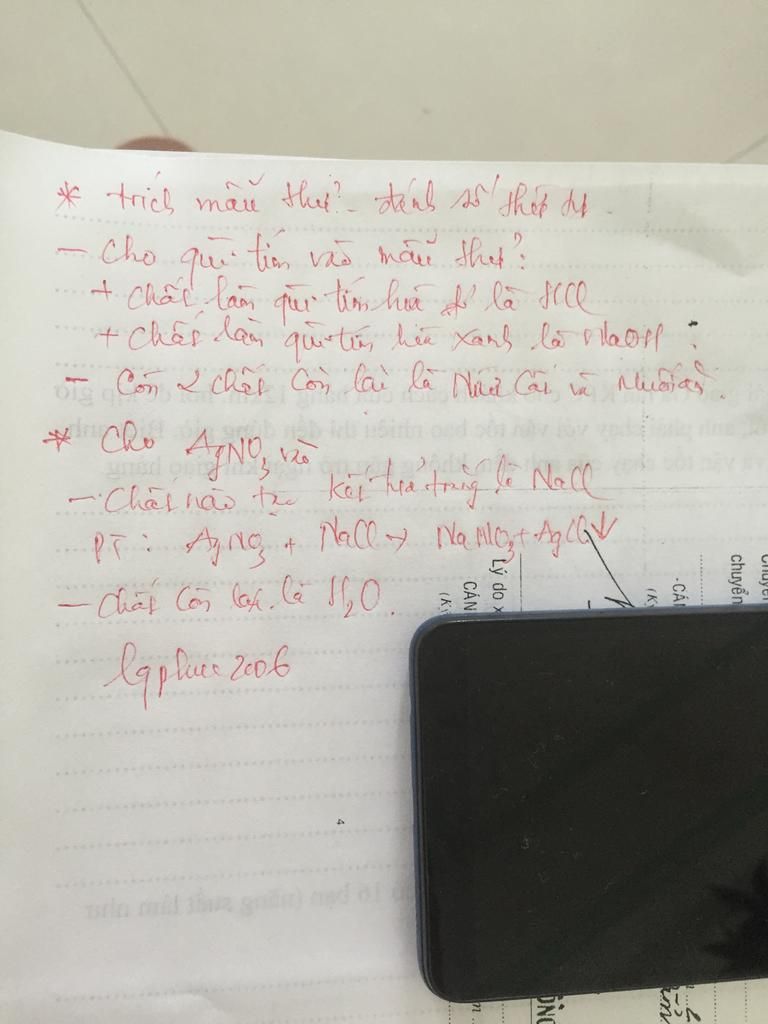 * trích mẫu thử - đánh số thứ tự
- Cho quì tím vào mẫu thử:
+ Chất làm quì tím hoá đỏ là HCl
+ Chất làm quì tím hoá xanh là NaOH
- Còn 2 chất còn lại là Nước Cất và Muối ăn.
* Cho AgNO3 vào
- Chất nào tạo kết tủa trắng là NaCl
PT: AgNO3 + NaCl → NaNO3 + AgCl↓
- Chất còn lại là H2O.
lqphuc2006
4
Lý do x
CÁN
(Ký
CÁN
(Ký
chuyển